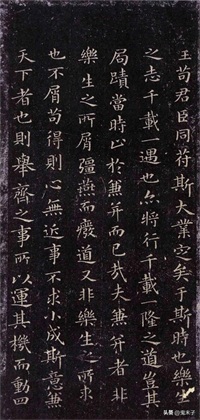 王苟君臣同符斯大業定矣于斯時也樂生
之志千載一遇也亦將行千載一隆之道豈其
局蹟當時止於兼并而已哉夫兼并者非
樂生之所屑彊燕而癈道又非樂生之所求
也不屑苟得則心無近事不求小成斯意兼
天下者也則舉齊之事所以運其機而動四
头条 @兔禾子